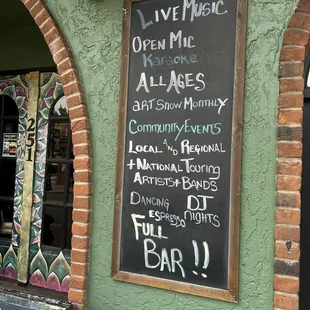 Live Music
Open Mic
Karaoke
All Ages
art Show Monthly
Community Events
Local and Regional
+ National Touring
Artists + Bands
Dancing DJ
espresso nights
Full
Bar !!
251